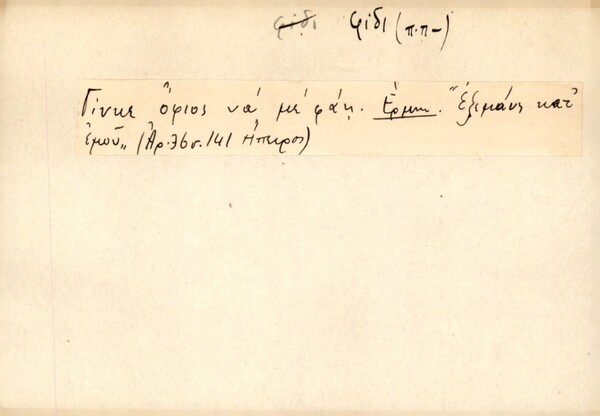 φίδι φίδι (π.π-)
Γίνκε ὄφιος νά μέ φάῃ. Ἑρμην. "ἐξεμάνη κατ'
ἐμοῦ„ (Ἀρ. 76 σ. 141 Ἤπειρος)